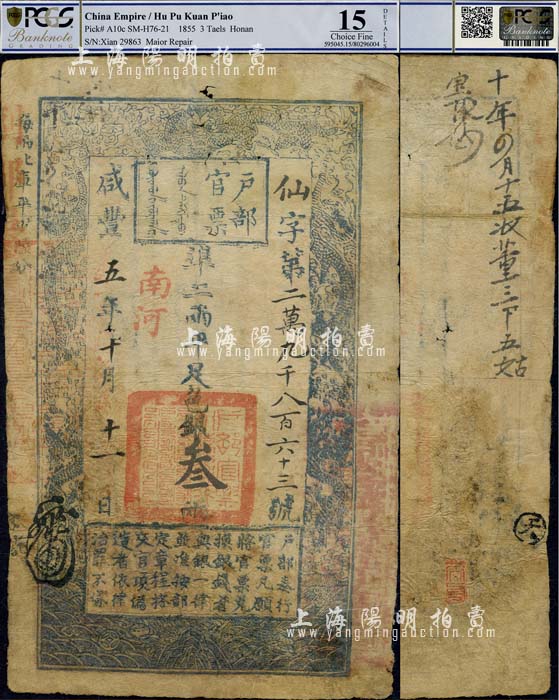 PCGS
Banknote
China Empire / Hu Pu Kuan P'iao
Pick# A10c SM-H76-21 1855 3 Taels Honan
S/N:Xian 29863 Major Repair
15
Choice Fine
595045.15/80296004
DETAILS
PCGS
Banknote
上海陽明拍賣
www.yangmingauction.com
户部
官票
仙字第二萬九千八百六十三號
準二兩平足色銀叁兩
咸豐五年十月十一日
南河
户部奏行
官票凡願
將官票兌
換銀錢者
與銀一律
並准按部
定章程搭
交官項偽
造者依律
治罪不貸
十年四月十五收董三下五姑
上海陽明拍賣
www.yangmingauction.com
上海陽明拍賣
www.yangmingauction.com